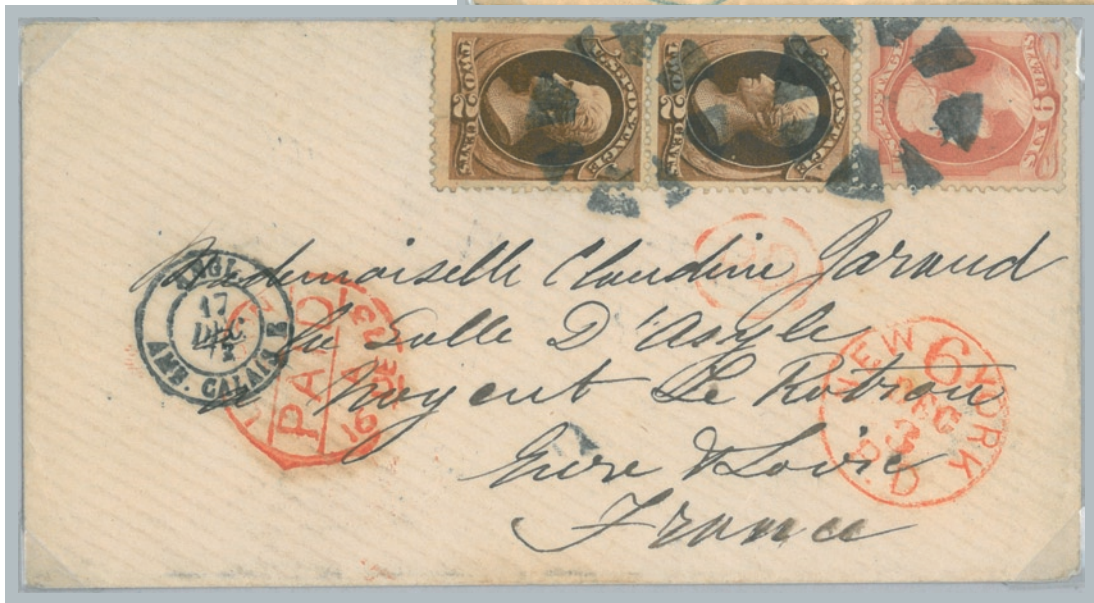 U.S. POSTAGE
TWO 2 CENTS
U.S. POSTAGE
TWO 2 CENTS
U.S. POSTAGE
SIX 6 CENTS
PD
Mademoiselle Claudine Garaud
La Salle D'Asyle
a Nogent Le Rotrou
Eure & Loire
France
ANGL.
17
DEC.
AMB. CALAIS
PAID
16 DE
NEW YORK
6
DEC
3
P.D